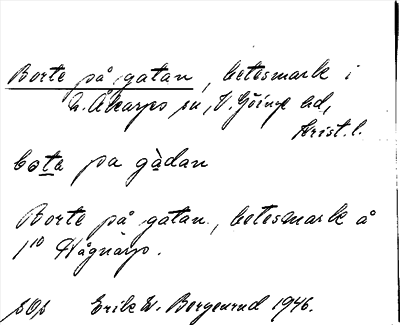 Borte på gatan, betesmark i
N. Åkarps sn, V. Göinge hd,
Krist. l.
bota pa gàdan
Borte på gatan, betesmark å
1¹⁰ Hågnarp.
Erik W. Bergenrud 1946.